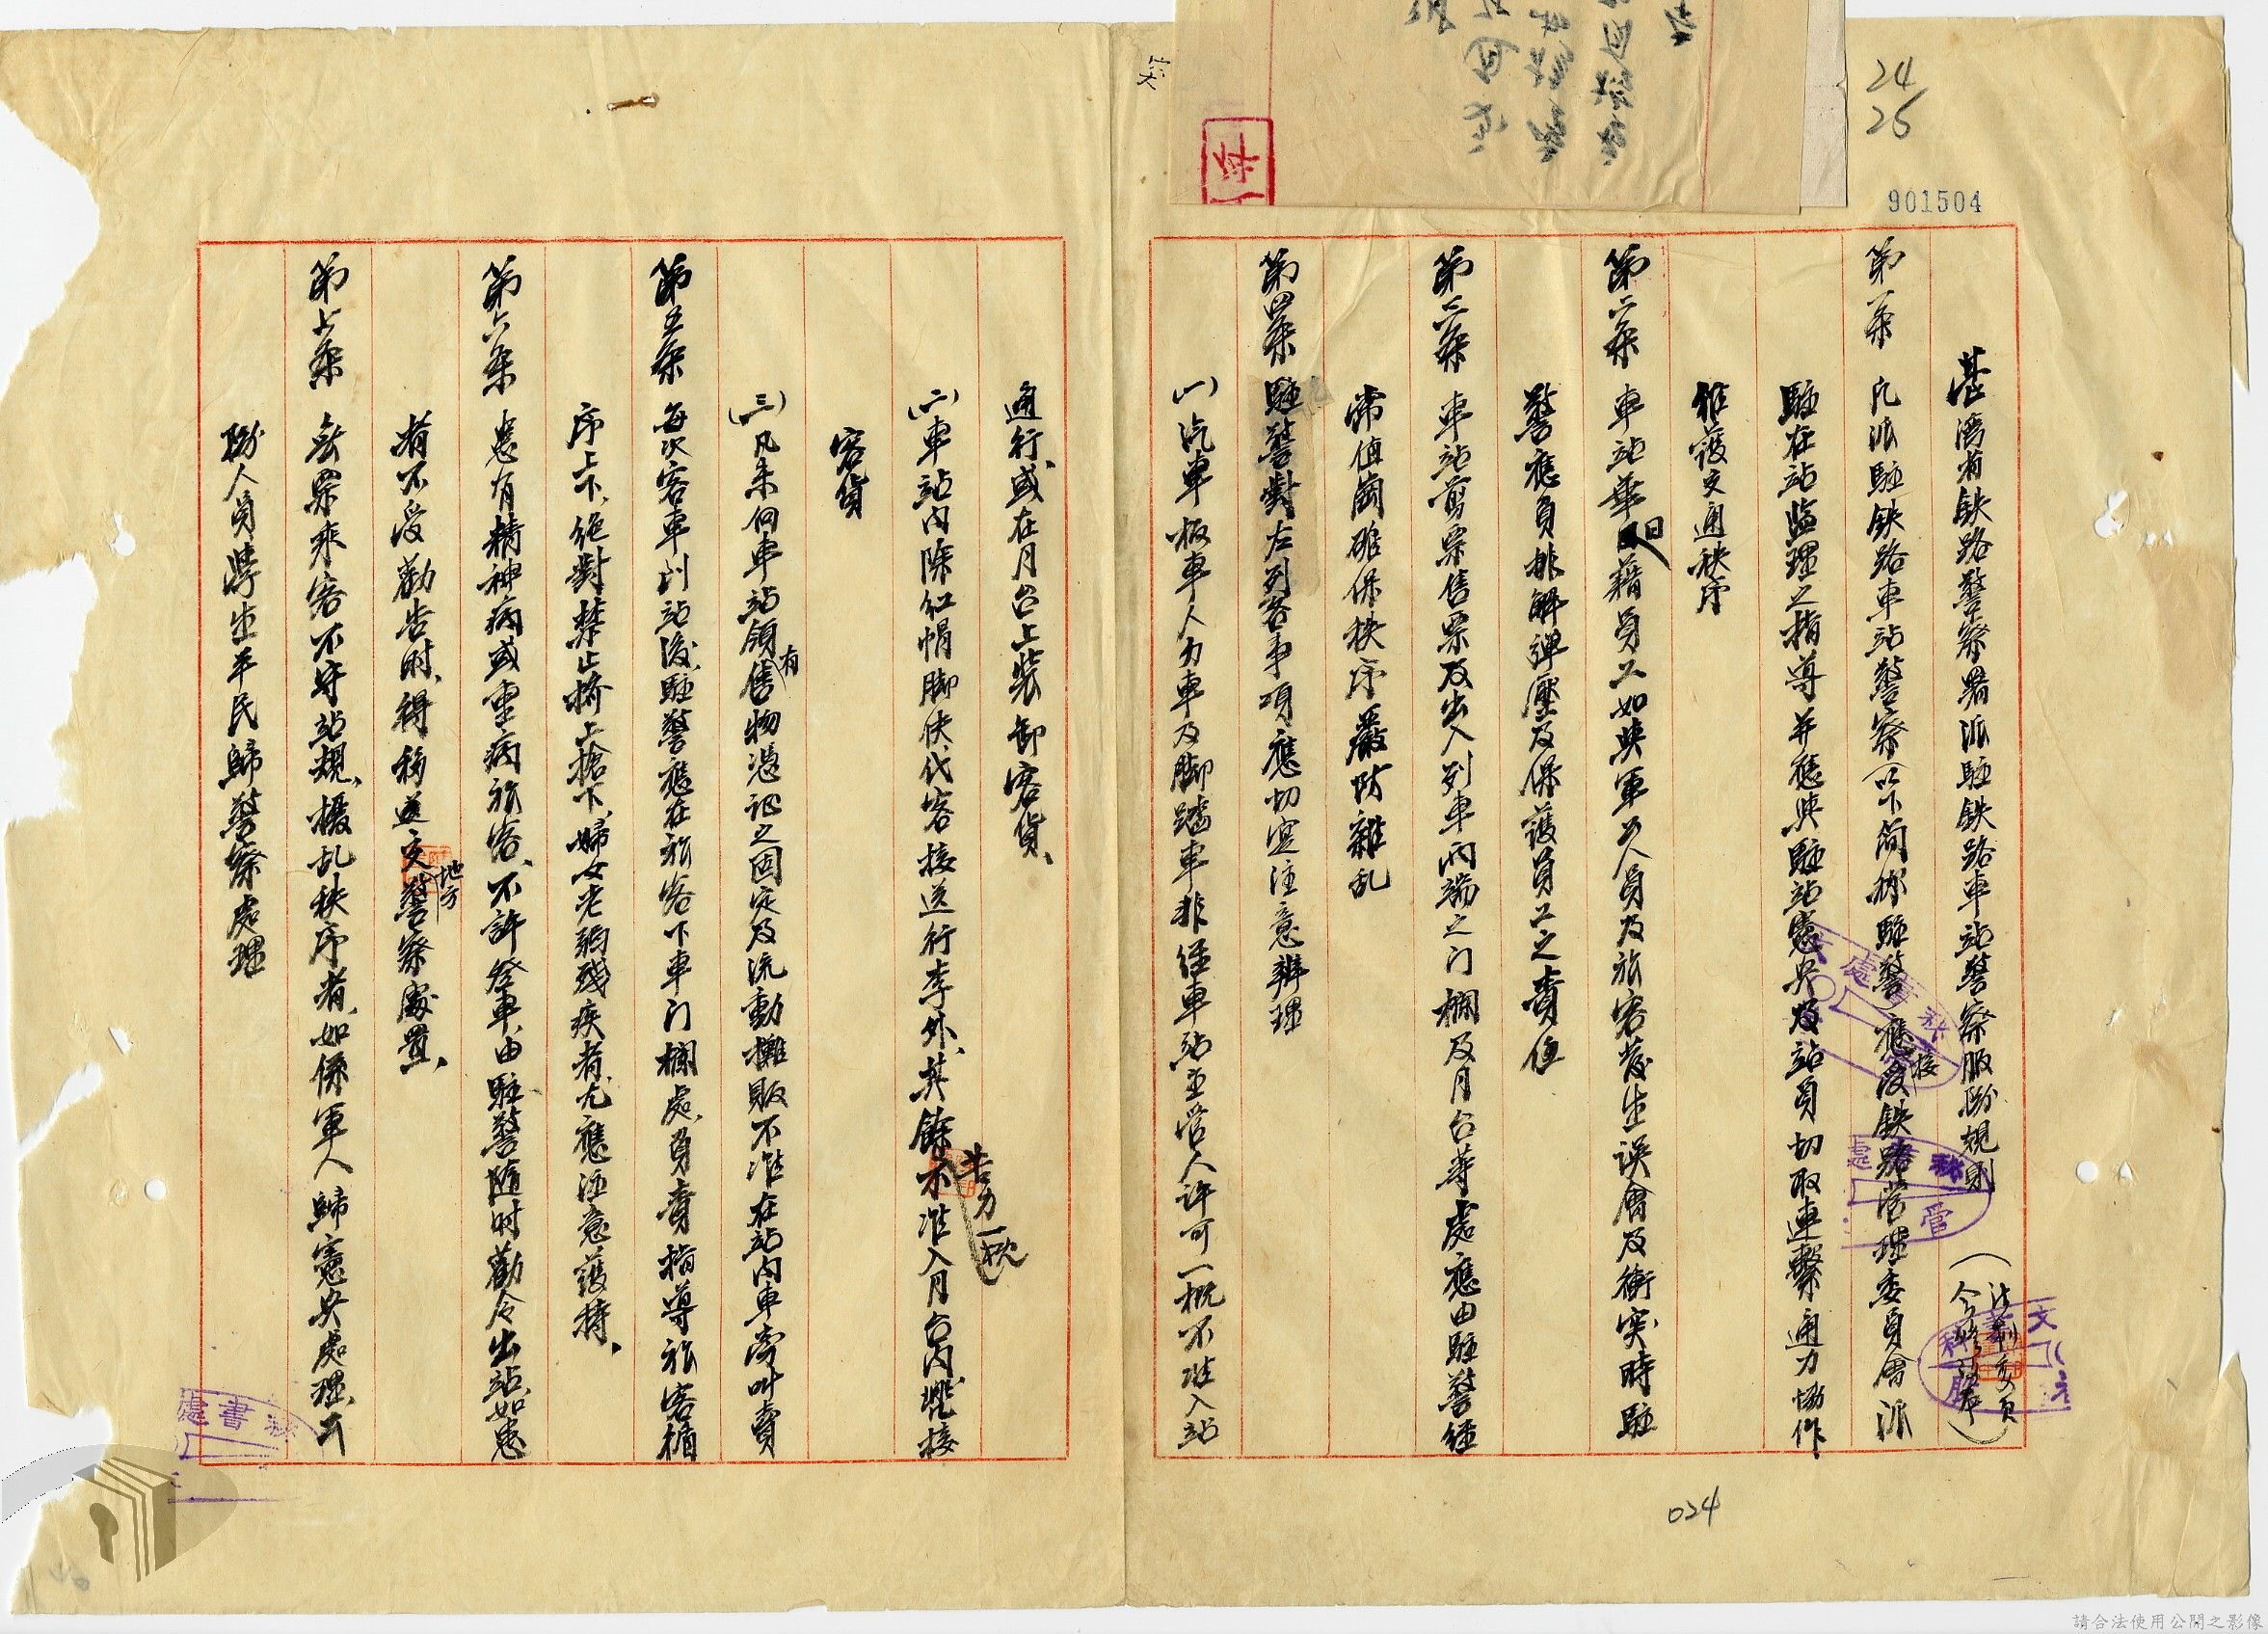 24
25
901504
台湾省鉄路警察署派駐鉄路車站警察服務規則
(法制委員
会修訂本)
第一条 凡派駐鉄路車站警察(以下简称駐警)應接受鉄路管理委員會派
駐在站監理之指導并應與駐站憲兵及站員切取連繫通力協作
維護交通秩序
第二条 車站華日籍員工如與軍公人員及旅客發生误會及衝突時駐
警應負排解彈壓及保護員工之責任
第三条 車站剪票售票及出入列車両端之门欄及月台等處應由駐警経
常值崗確保秩序嚴防雜乱
第四条 駐警對左列各事項應切實注意辦理
(一)汽車板車人力車及脚踏車非経車站主管人許可一概不准入站
通行或在月台上裝卸客貨、
(二)車站内除紅帽脚伕代客接送行李外、其餘苦力一概不准入月台内攬接
客貨
(三)凡未向車站領有售物憑证之固定及流動攤販不准在站内車旁叫賣
第五条 每次客車到站後、駐警應在旅客下車门欄處、負責指導旅客循
序上下、絶對禁止擠上搶下、婦女老弱殘疾者尤應注意護持、
第六条 患有精神病或重病旅客、不許登車、由駐警随时勸令出站、如患
者不受勸告时、得移送交地方警察處置、
第七条 無票乘客不守站規、擾乱秩序者、如係軍人歸憲兵處理、公
務人員學生平民歸警察處理
024
秘書處
秘書處
管
文書科
股
秘書處
請合法使用公開之影像